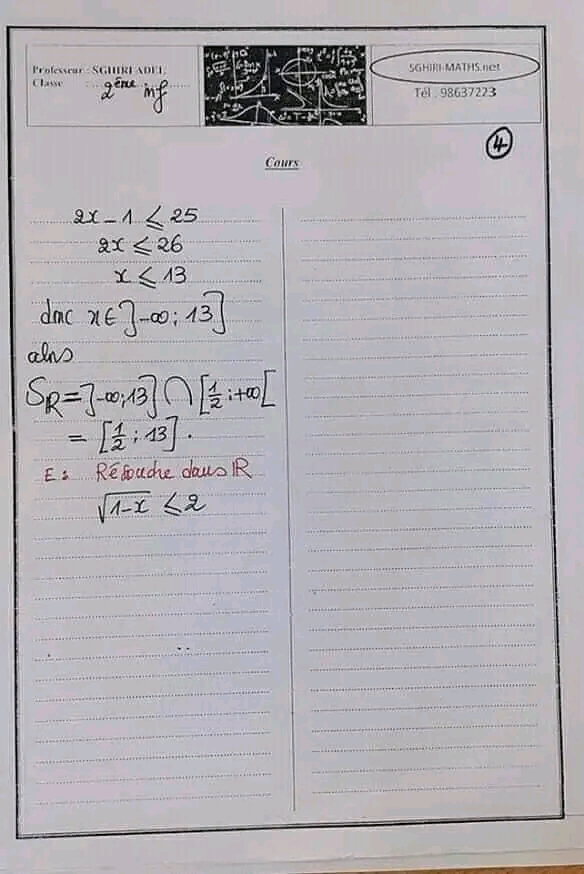 Professeur : SGHIRI ADEL
Classe : 2ème inf
SGHIRI-MATHS.net
Tél : 98637223
4
Cours
2x - 1 ⩽ 25
2x ⩽ 26
x ⩽ 13
donc x ∈ ]-∞ ; 13]
alors
Sℝ = ]-∞ ; 13] ∩ [1/2 ; +∞[
= [1/2 ; 13] .
E : Résoudre dans ℝ
√1-x ⩽ 2